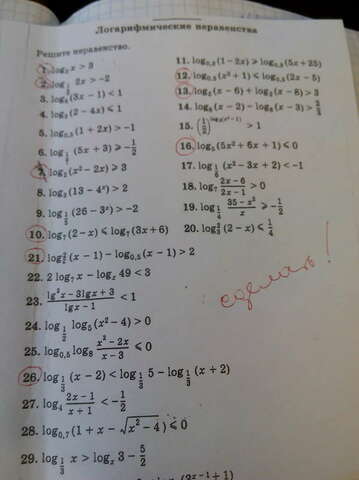 Логарифмические неравенства
Решите неравенство.
1. log₂ x > 3
2. log_{1/3} 2x > −2
3. log₄(3x − 1) < 1
4. log₃(2 − 4x) ⩽ 1
5. log₀,₅(1 + 2x) > −1
6. (5x + 3) ⩾ −1/2
7. log₂(x² − 2x) ⩾ 3
8. log₃(13 − 4ˣ) > 2
9. (26 − 3ˣ) > −2
10. log₇(2 − x) ⩽ log₇(3x + 6)
11. (1 − 2x) ⩾ (5x + 25)
12. (x² + 1) ⩽ (2x − 5)
13. log₂(x − 6) + log₂(x − 8) > 3
14. log₈(x − 2) − log₈(x − 3) > 2/3
15. > 1
16. log₅(5x² + 6x + 1) ⩽ 0
17. (x² − 3x + 2) < −1
18. log₇ (2x − 6)/(2x − 1) > 0
19. log_{1/4} (35 − x²)/x ⩾ −1/2
20. (2 − x) ⩽ 1/4
21. (x − 1) − log₀,₅(x − 1) > 2
22. 2 log₇ x − logₓ 49 < 3
23. (lg²x − 3lgx + 3)/(lgx − 1) < 1
24. log_{1/2} log₅(x² − 4) > 0
25. log₀,₅ log₈ (x² − 2x)/(x − 3) ⩽ 0
26. log_{1/3}(x − 2) < log_{1/3} 5 − log_{1/3}(x + 2)
27. log₄ (2x − 1)/(x + 1) < −1/2
28. log₀,₇(1 + x − √(x² − 4)) ⩽ 0
29. log_{1/3} x > logₓ 3 − 5/2
сделать!